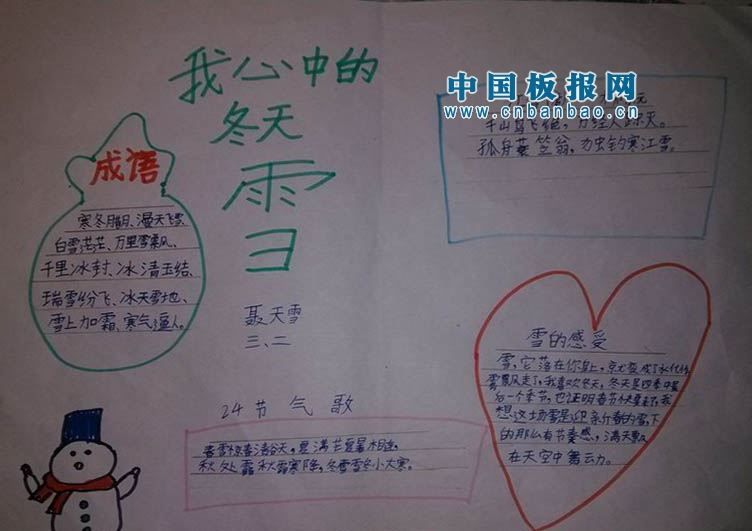 我心中的
冬天
雪
成语
寒冬腊月、漫天飞雪
白雪茫茫、万里雪飘、
千里冰封、冰清玉结、
瑞雪纷飞、冰天雪地、
雪上加霜、寒气逼人。
聂天雪
三、二
中国板报网
www.cnbanbao.cn
元
千山鸟飞绝，万径人踪灭。
孤舟蓑笠翁，独钓寒江雪。
雪的感受
雪，它落在你身上，就变成了水化作
雪飘风走了，我喜欢冬天，冬天是四季中最
后一个季节，也证明春节快要来了，我
想这场雪是迎亲新春的雪，下
的那么有节奏感，满天飘
在天空中舞动。
24节气歌
春雪惊春清谷天，夏满芒夏暑相连，
秋处露秋霜寒降，冬雪雪冬小大寒。